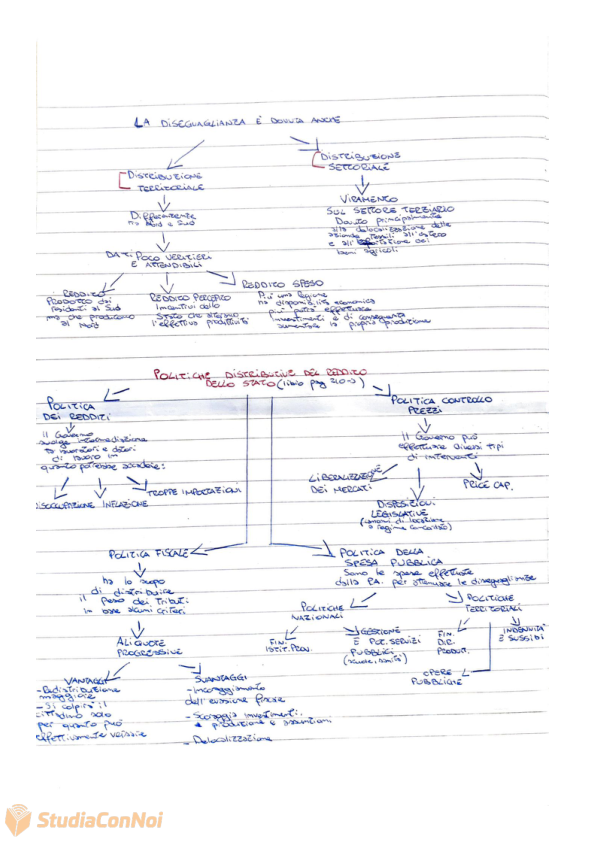 LA DISEGUAGLIANZA È DOVUTA ANCHE
DISTRIBUZIONE
TERRITORIALE
DISTRIBUZIONE
SETTORIALE
Differenze
tra Nord e Sud
VIRAMENTO
SUL SETTORE TERZIARIO
Dovuto principalmente
alla delocalizzazione delle
aziende tessili all'estero
e all' dei
beni agricoli
DATI POCO VERITIERI
E ATTENDIBILI
REDDITO
PRODOTTO dai
residenti al Sud
ma che producono
al Nord
REDDITO PERCEPITO
Incentivi dallo
Stato che alterano
l'effettiva produttività
REDDITO SPESO
Più una Regione
ha disponibilità economica
più potrà effettuare
investimenti e di conseguenza
aumentare la propria produzione
POLITICHE DISTRIBUTIVE DEL REDDITO
DELLO STATO (libro pag 210->)
POLITICA
DEI REDDITI
Il Governo
svolge intermediazione
tra lavoratori e datori
di lavoro in
quanto potrebbe accadere:
DISOCCUPAZIONE
INFLAZIONE
TROPPE IMPORTAZIONI
POLITICA CONTROLLO
PREZZI
Il Governo può
effettuare diversi tipi
di interventi
LIBERALIZZAZIONE
DEI MERCATI
DISPOSIZIONI
LEGISLATIVE
(canoni di locazione
a regime concordato)
PRICE CAP.
POLITICA FISCALE
ha lo scopo
di distribuire
il peso dei Tributi
in base alcuni criteri
ALIQUOTE
PROGRESSIVE
VANTAGGI
- Redistribuzione
maggiore
- Si colpirà il
cittadino solo
per quanto può
effettivamente versare
SVANTAGGI
- Incoraggiamento
dell'evasione fiscale
- Scoraggia investimenti,
produzione e assunzioni
- Delocalizzazione
POLITICA DELLA
SPESA PUBBLICA
Sono le spese effettuate
dalla P.A. per attenuare le diseguaglianze
POLITICHE
NAZIONALI
FIN.
ISTIT. PROV.
GESTIONE
E POT. SERVIZI
PUBBLICI
(scuole, sanità)
POLITICHE
TERRITORIALI
FIN.
DIR.
PRODUT.
OPERE
PUBBLICHE
INDENNITÀ
E SUSSIDI
StudiaConNoi